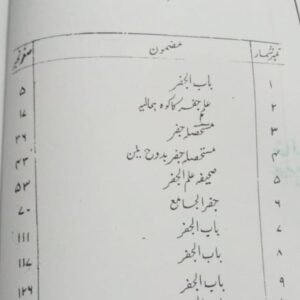 نمبر شمار مضمون صفحہ نمبر
۱ باب الجفر ۵
۲ علم جفر کا کوہ ہمالیہ ۱۷
۳ مستحصلہ جفر ۲۶
۴ مستحصلہ جفر بدوح یلن ۴۳
۵ صحیفہ علم الجفر ۵۳
۶ جفر الجامع ۷۰
۷ باب الجفر ۱۱۱
۸ باب الجفر ۱۱۷
۹ باب الجفر ۱۲۶